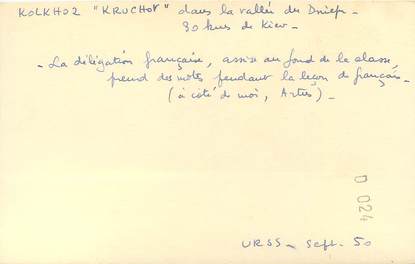 KOLKHOZ "KRUCHOV" dans la vallée du Dniepr -
30 kms de Kiev -
- La délégation française, assise au fond de la classe,
prend des notes pendant la leçon de français -
(à côté de moi, ) -
D 024
URSS - Sept. 50